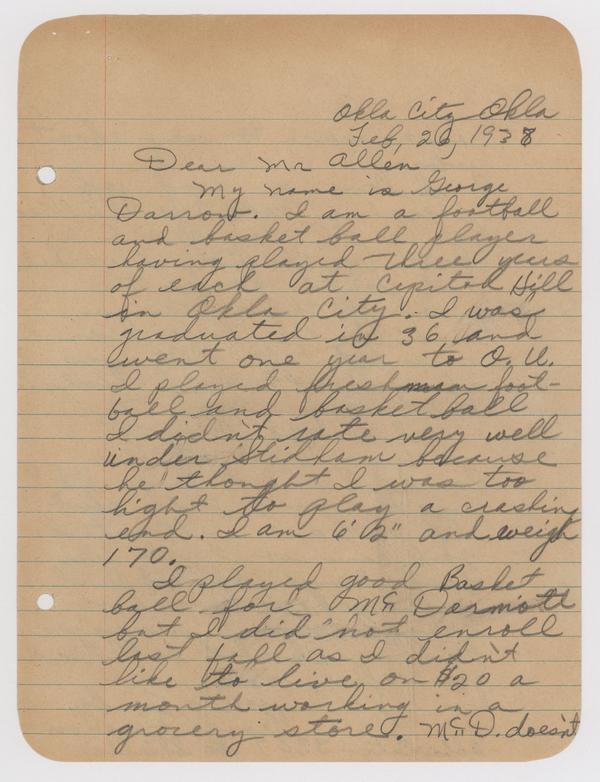 Okla City Okla
Feb, 26, 1938
Dear Mr Allen
My name is George
Darrow. I am a football
and basket ball player
having played three years
of each at Capitol Hill
in Okla City. I was
graduated in 36, and
went one year to O. U.
I played freshman foot-
ball and basketball
I didn't rate very well
under Stidham because
he thought I was too
light to play a crashing
end. I am 6'2" and weigh
170.
I played good Basket
ball for Mc Dermott
but I did not enroll
last fall as I didn't
like to live on $20 a
month working in a
grocery store. Mc D. doesn't